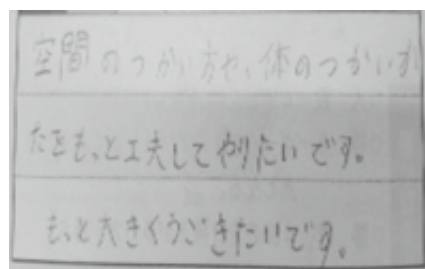 空間のつかい方や、体のつかいか
たをもっと工夫してやりたいです。
もっと大きくうごきたいです。